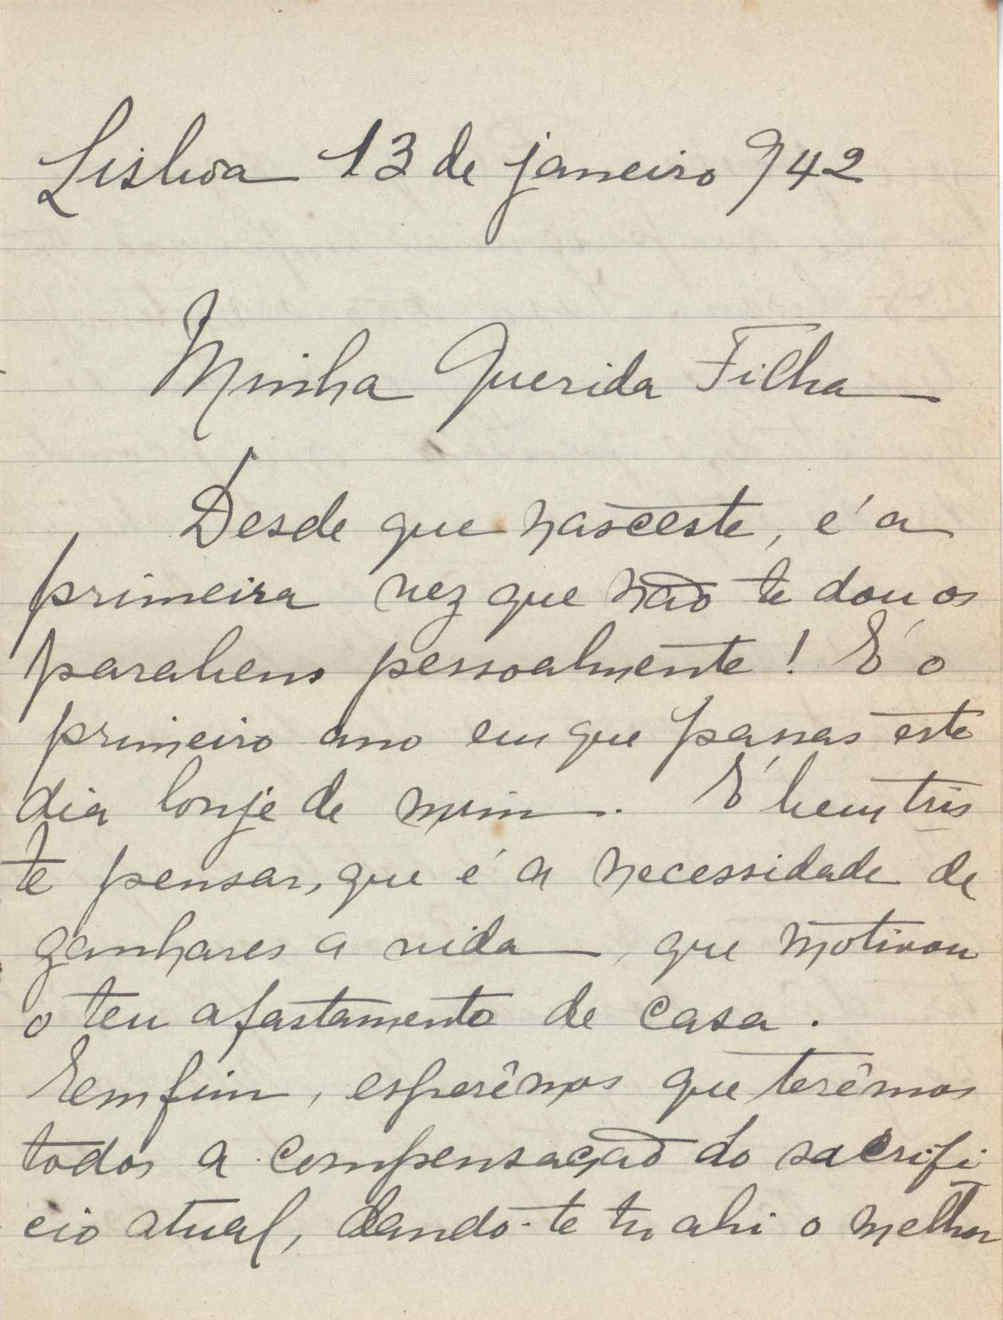 Lisboa 13 de janeiro 942
Minha Querida Filha
Desde que nasceste, é a
primeira vez que não te dou os
parabens pessoalmente! É o
primeiro ano em que passas este
dia lonje de mim. É bem tris
te pensar, que é a necessidade de
ganhares a vida, que motivou
o teu afastamento de casa.
Eemfim, esperêmos que terêmos
todos a compensação do sacrifi
cio atual, dando-te tu ahi o melhor